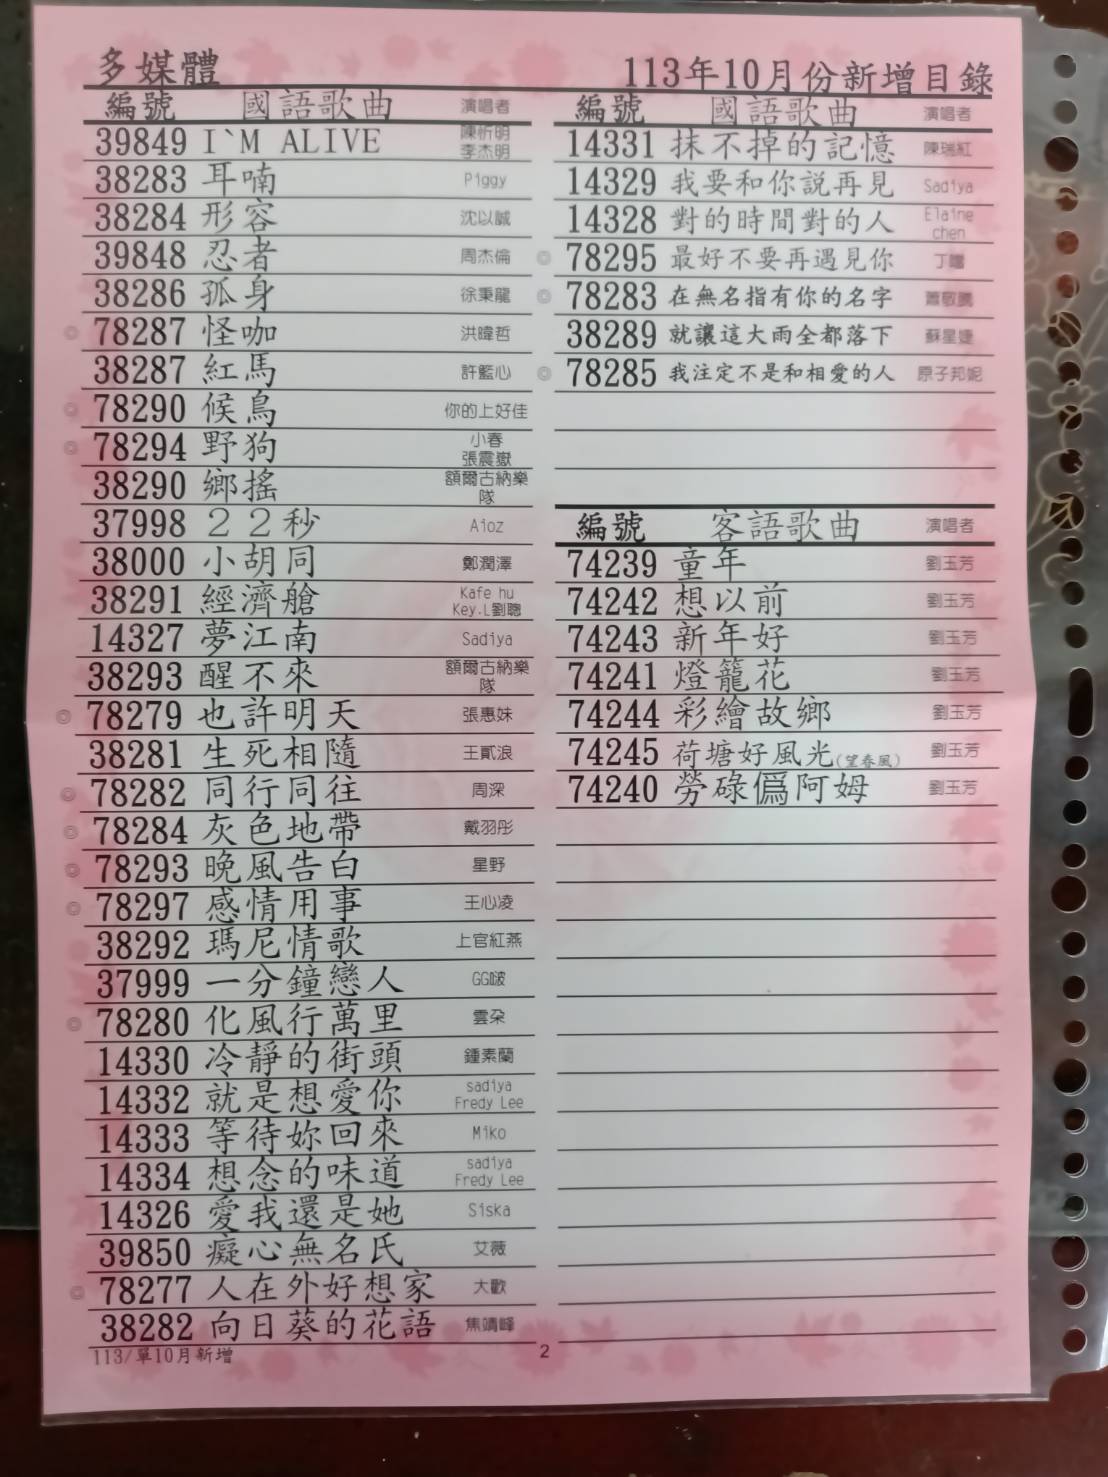 多媒體
113年10月份新增目錄
編號 國語歌曲 演唱者
39849 I`M ALIVE 陳忻明 李杰明
38283 耳喃 Piggy
38284 形容 沈以誠
39848 忍者 周杰倫
38286 孤身 徐秉龍
◎ 78287 怪咖 洪暐哲
38287 紅馬 許籃心
◎ 78290 候鳥 你的上好佳
◎ 78294 野狗 小春 張震嶽
38290 鄉搖 額爾古納樂隊
37998 22秒 Aioz
38000 小胡同 鄭潤澤
38291 經濟艙 Kafe hu Key.L劉聰
14327 夢江南 Sadiya
38293 醒不來 額爾古納樂隊
◎ 78279 也許明天 張惠妹
38281 生死相隨 王貳浪
◎ 78282 同行同往 周深
◎ 78284 灰色地帶 戴羽彤
◎ 78293 晚風告白 星野
◎ 78297 感情用事 王心凌
38292 瑪尼情歌 上官紅燕
37999 一分鐘戀人 GG啵
◎ 78280 化風行萬里 雲朵
14330 冷靜的街頭 鍾素蘭
14332 就是想愛你 sadiya Fredy Lee
14333 等待妳回來 Miko
14334 想念的味道 sadiya Fredy Lee
14326 愛我還是她 Siska
39850 癡心無名氏 艾薇
◎ 78277 人在外好想家 大歡
38282 向日葵的花語 焦靖峰
113/單10月新增
編號 國語歌曲 演唱者
14331 抹不掉的記憶 陳瑞紅
14329 我要和你說再見 Sadiya
14328 對的時間對的人 Elaine chen
◎ 78295 最好不要再遇見你 丁噹
◎ 78283 在無名指有你的名字 蕭敬騰
38289 就讓這大雨全都落下 蘇星婕
◎ 78285 我注定不是和相愛的人 原子邦妮
編號 客語歌曲 演唱者
74239 童年 劉玉芳
74242 想以前 劉玉芳
74243 新年好 劉玉芳
74241 燈籠花 劉玉芳
74244 彩繪故鄉 劉玉芳
74245 荷塘好風光(望春風) 劉玉芳
74240 勞碌僞阿姆 劉玉芳
2